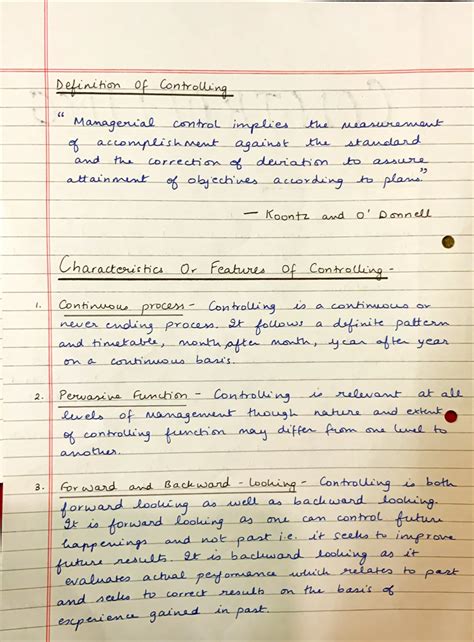 Definition Of Controlling
" Managerial control implies the measurement
of accomplishment against the standard
and the correction of deviation to assure
attainment of objectives according to plans."
— Koontz and O' Donnell
Characteristics Or Features Of Controlling -
1. Continuous process - Controlling is a continuous or
never ending process. It follows a definite pattern
and timetable, month after month, year after year
on a continuous basis.
2. Pervasive Function - Controlling is relevant at all
levels of management though nature and extent
of controlling function may differ from one level to
another.
3. Forward and Backward - looking - Controlling is both
forward looking as well as backward looking.
It is forward looking as one can control future
happenings and not past i.e. it seeks to improve
future results. It is backward looking as it
evaluates actual performance which relates to past
and seeks to correct results on the basis of
experience gained in past.